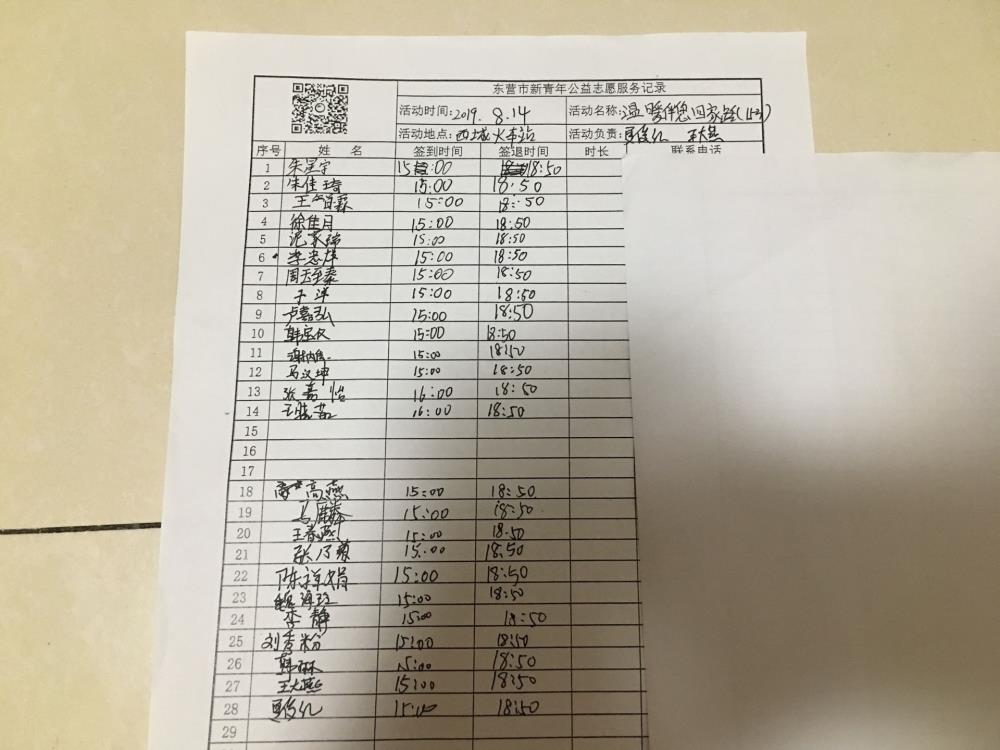 东营市新青年公益志愿服务记录
活动时间:2019. 8.14 活动名称:温暖伴您回家路
活动地点:西城火车站 活动负责: 王大燕
序号 姓 名 签到时间 签退时间 时长 联系电话
1 朱星宇 15:00 18:50
2 朱佳琦 15:00 18:50
3 王 15:00 18:50
4 徐佳月 15:00 18:50
5 15:00 18:50
6 李忠 15:00 18:50
7 周玉 15:00 18:50
8 于洋 15:00 18:50
9 卢嘉弘 15:00 18:50
10 韩 15:00 18:50
11 15:00 18:50
12 马汉坤 15:00 18:50
13 张嘉怡 16:00 18:50
14 王 16:00 18:50
15
16
17
18 高燕 15:00 18:50
19 马麟 15:00 18:50
20 王春燕 15:00 18:50
21 张乃菊 15:00 18:50
22 陈祥娟 15:00 18:50
23 魏 15:00 18:50
24 李静 15:00 18:50
25 刘秀粉 15:00 18:50
26 韩琳 15:00 18:50
27 王大燕 15:00 18:50
28 15:00 18:50
29